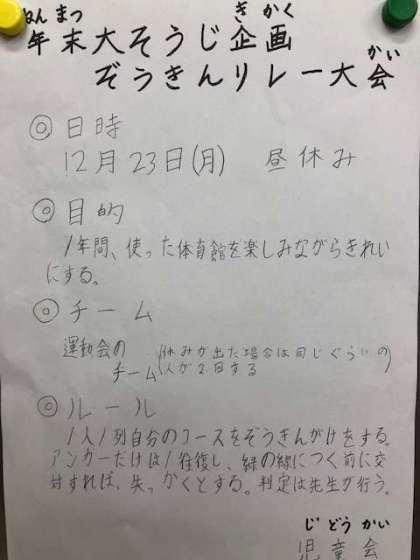 ねんまつ きかく
年末大そうじ企画
かい
ぞうきんリレー大会
◎日時
12月23日(月) 昼休み
◎目的
1年間、使った体育館を楽しみながらきれい
にする。
◎チーム
運動会の
チーム
(休みが出た場合は同じぐらいの
人が2回する)
◎ルール
1人1列自分のコースをぞうきんがけをする。
アンカーだけは1往復し、緑の線につく前に交
対すれば、失っかくとする。判定は先生が行う。
じどうかい
児童会